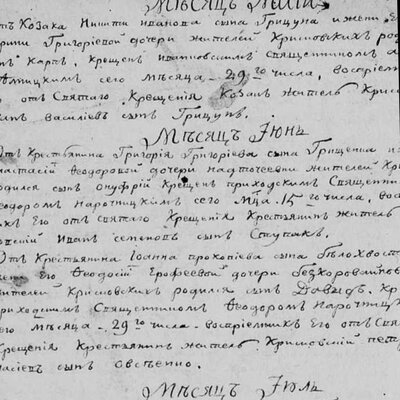 Мѣсяцъ Маій
отъ Козака Никиты Иванова сына Грицуна и жены Е
Григоріевой дочери жителей Крисовскихъ род
Карпъ, крещенъ священникомъ
сего Мѣсяца 29го числа, воспріем
отъ Святаго Крещенія Козакъ житель Крис
Василіевъ сынъ Грицунъ.
Мѣсяцъ Іюнь
Отъ Крестьянина Григорія Григоріева сына Грищенка и
настасіи Ѳеодоровой дочери жителей Кри
родился сынъ Онуфрій Крещенъ приходскимъ Священни
Ѳеодоромъ Нарочицкимъ сего Мца 15го числа, вос
къ Его отъ святаго Крещенія Крестьянинъ житель
Иванъ Семеновъ сынъ Ступакъ.
Отъ Крестьянина Іоанна Прокопіева сына Бѣлохвост
Его Ѳеодосіи Ерофеевой дочери
жителей Крисовскихъ родился сынъ Давидъ. Кр
приходскимъ Священникомъ Ѳеодоромъ Нарочиц
его мѣсяца 29го числа. воспріемникъ Его отъ Свя
Крещенія Крестьянинъ житель Крисовскій Петр
насіевъ сынъ Овсѣенко.
Мѣсяцъ Іюль